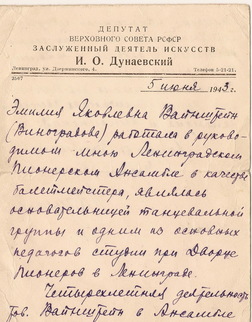 ДЕПУТАТ
ВЕРХОВНОГО СОВЕТА РСФСР
ЗАСЛУЖЕННЫЙ ДЕЯТЕЛЬ ИСКУССТВ
И. О. Дунаевский
Ленинград, ул. Дзержинского, 4. Телефон 5-21-21.
5 июня 1943 г.
Эмилия Яковлевна Вайнштейн
(Виноградова) работала в руково-
димом мною Ленинградском
Пионерском Ансамбле в качестве
балетмейстера, являлась
основательницей танцевальной
группы и одним из основных
педагогов студии при Дворце
Пионеров в Ленинграде.
Четырехлетняя деятельность
тов. Вайнштейн в Ансамбле